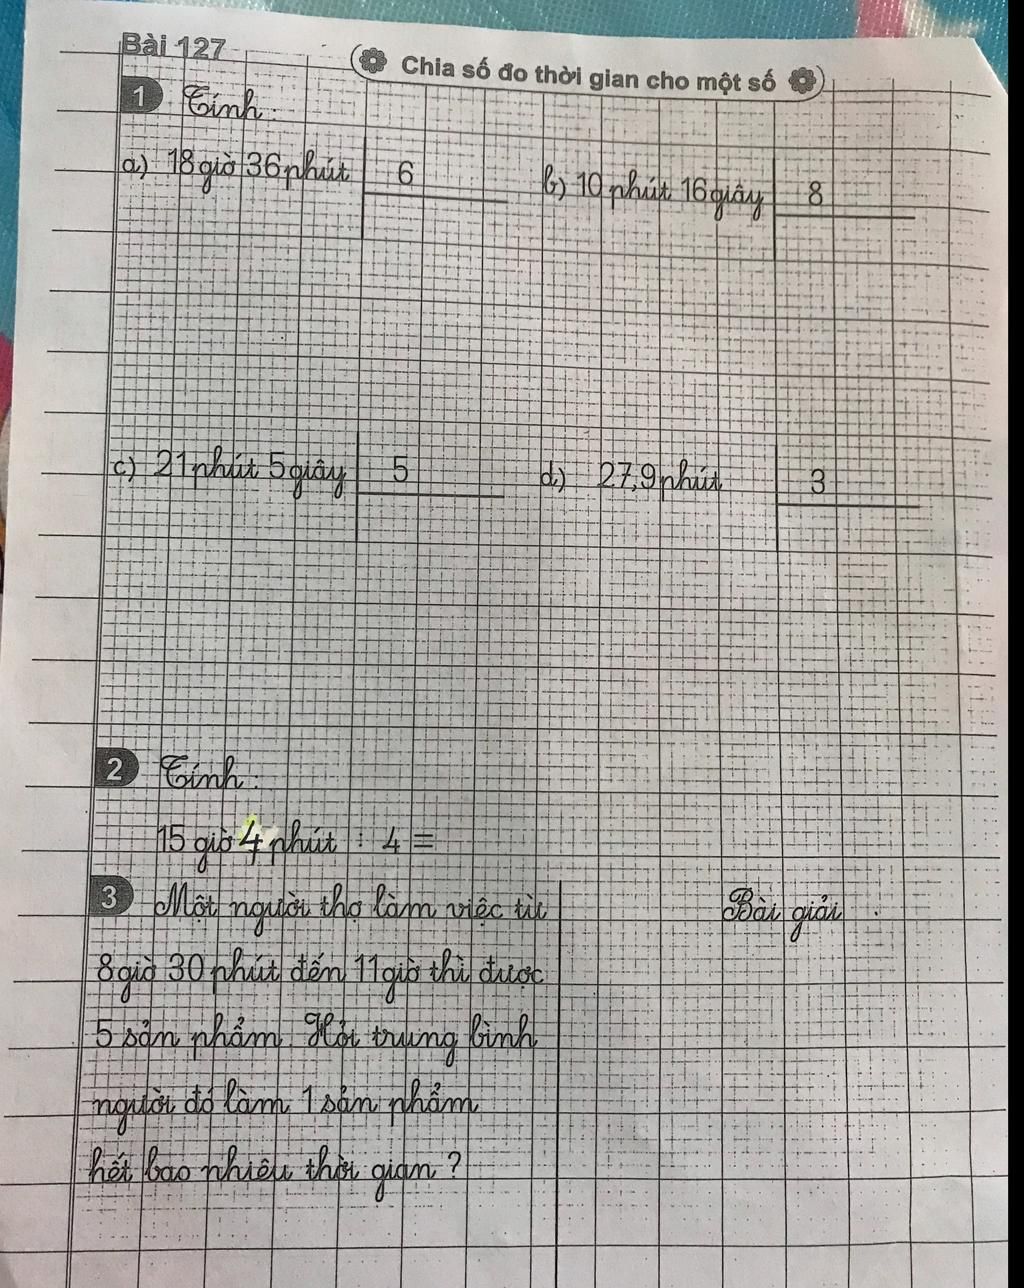 Bài 127
Chia số đo thời gian cho một số
1 Tính:
a) 18 giờ 36 phút 6
b) 10 phút 16 giây 8
c) 21 phút 5 giây 5
d) 27,9 phút 3
2 Tính:
15 giờ 4 phút : 4 =
3 Một người thợ làm việc từ
8 giờ 30 phút đến 11 giờ thì được
5 sản phẩm. Hỏi trung bình
người đó làm 1 sản phẩm
hết bao nhiêu thời gian?
Bài giải